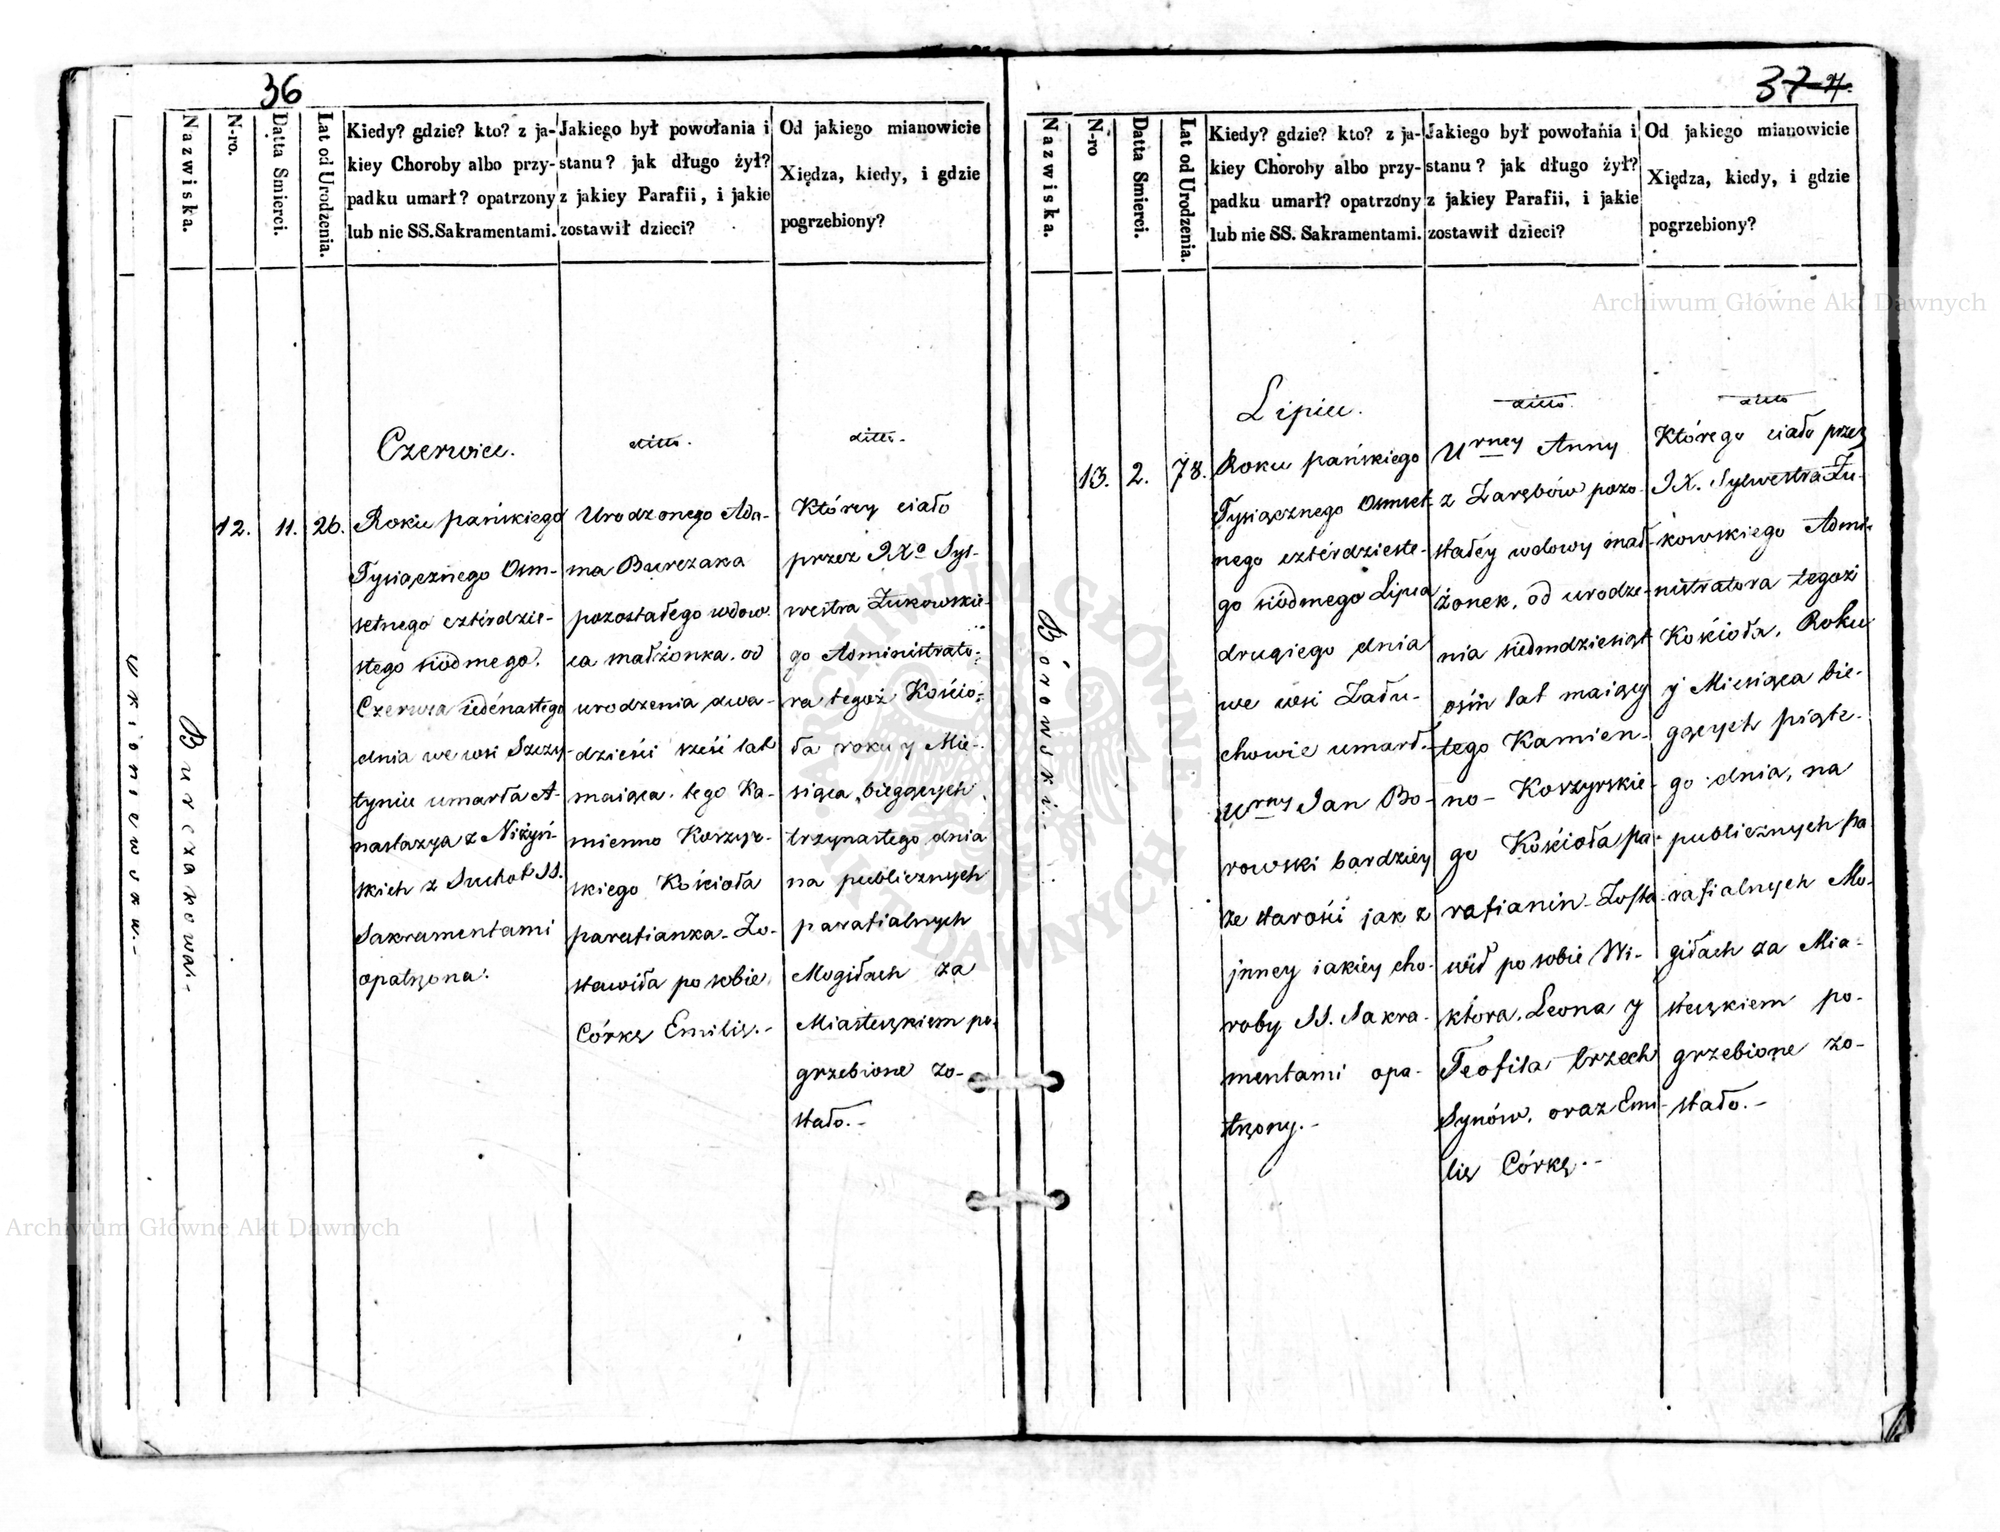 36
Nazwiska.
N-ro.
Datta Smierci.
Lat od Urodzenia.
Kiedy? gdzie? kto? z ja-
kiey Choroby albo przy-
padku umarł? opatrzony
lub nie SS. Sakramentami.
Jakiego był powołania i
stanu? jak długo żył?
z jakiey Parafii, i jakie
zostawił dzieci?
Od jakiego mianowicie
Xiędza, kiedy, i gdzie
pogrzebiony?
Burczakowa.-
12.
11.
26.
Czerwiec.
Roku pańskiego
Tysiącznego Osm-
setnego cztérdzie-
stego siódmego.
Czerwca iedénastego
dnia we wsi Szczy-
tyniu umarła A-
nastazya z Niżyń-
skich z Suchot SS.
Sakramentami
opatrzona.
ditto.
Urodzonego Ada-
ma Burczaka
pozostałego wdow-
ca małżonka. od
urodzenia dwa-
dzieści sześć lat
maiąca. tego Ka-
mienno Koszyr-
skiego Kościoła
parafianka. Zo-
stawiła po sobie
Córkę Emilię.-
ditto.
Którey ciało
przez JXa Syl-
westra Żukowskie-
go Administrato-
ra tegoż Kościo-
ła roku y Mie-
siąca bieggcych
trzynastego dnia
na publicznych
parafialnych
Mogiłach za
Miasteczkiem po-
grzebione zo-
stało.-
37
Nazwiska.
N-ro
Datta Smierci.
Lat od Urodzenia.
Kiedy? gdzie? kto? z ja-
kiey Choroby albo przy-
padku umarł? opatrzony
lub nie SS. Sakramentami.
Jakiego był powołania i
stanu? jak długo żył?
z jakiey Parafii, i jakie
zostawił dzieci?
Od jakiego mianowicie
Xiędza, kiedy, i gdzie
pogrzebiony?
Bórowski.-
13.
2.
78.
Lipiec.
Roku pańskiego
Tysiącznego Osmset-
nego cztérdzieste-
go siódmego Lipca
drugiego dnia
we wsi Zału-
chowie umarł.
Urny Jan Bo-
rowski bardziey
ze starości jak z
jnney iakiéy cho-
roby SS. Sakra-
mentami opa-
trzony.-
ditto.
Urney Anny
z Zarębów pozo-
stałéy wdowy mał-
żonek, od urodze-
nia siedmdziesiąt
ośm lat maiący
tego Kamien-
no-Koszyrskie-
go Kościoła pa-
rafianin. Zosta-
wił po sobie Wi-
ktora, Leona y
Teofila trzech
Synów, oraz Emi-
lię Córkę.-
ditto
Którego ciało przez
JX. Sylwestra Żu-
kowskiego Admi-
nistratora tegoż
Kościoła, Roku
y Miesiąca bie-
gących piąte-
go dnia, na
publicznych pa-
rafialnych Mo-
giłach za Mia-
steczkiem po-
grzebione zo-
stało.-
Archiwum Główne Akt Dawnych
Archiwum Główne Akt Dawnych
ARCHIWUM GŁÓWNE AKT DAWNYCH